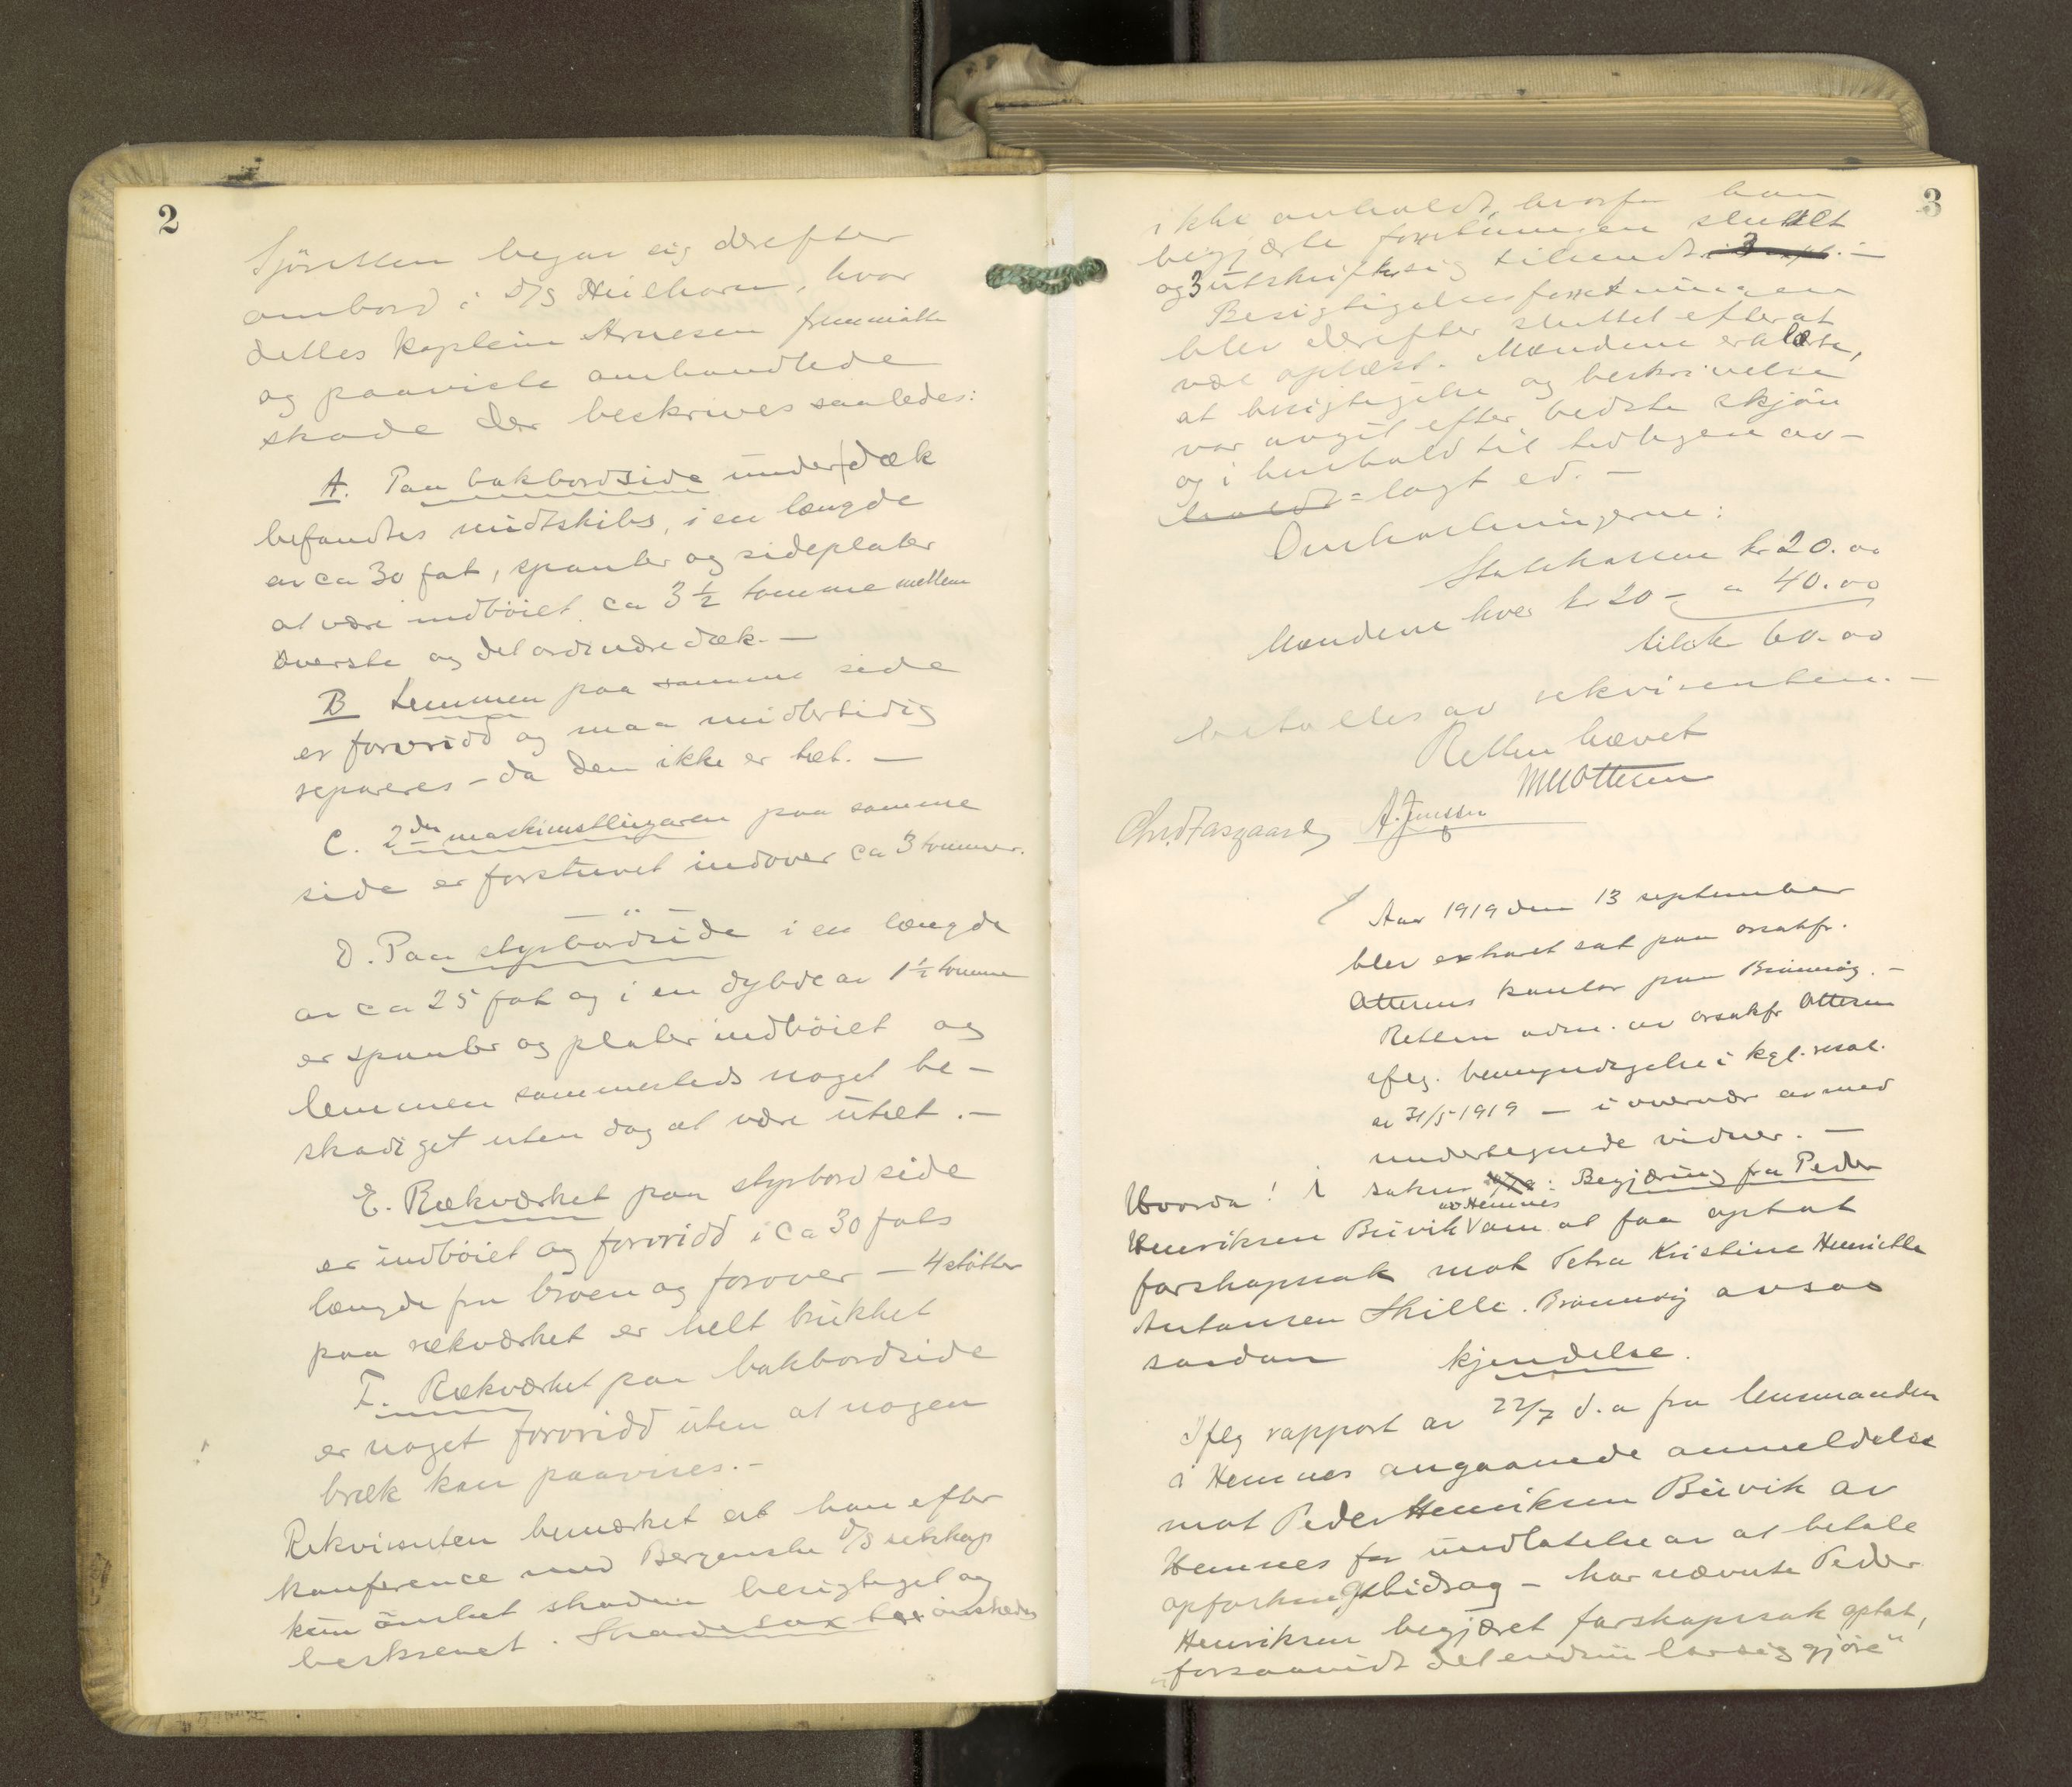 2
Sjöretten begav sig derefter
ombord i D/S Heilhorn, hvor
dettes kaptein Arnesen fremmötte
og paaviste omhandlede
skade der beskrives saaledes:
A. Paa bakbordside under dæk
befandtes midtskibs, i en længde
av ca 30 fot, spanter og sideplater
at være indböiet ca 3 1/2 tomme mellem
överste og det ordinære dæk. —
B Lemmen paa samme side
er forvridd og maa midlertidig
repareres – da den ikke er tæt. —
C. 2den maskinstlingeren paa samme
side er forstuvet indover ca 3 tommer.
D. Paa styrbordside i en længde
av ca 25 fot og i en dybde av 1 1/2 tomme
er spanter og plater indböiet og
lemmen sammesteds noget be-
skadiget uten dog at være utæt. —
E. Rækværket paa styrbord side
er indböiet og forvridd i ca 30 fots
længde fra broen og forover — 4 stötter
paa rækværket er helt brukket
F. Rækværket paa bakbordside
er noget forvridd uten at nogen
bræk kan paavises. –
Rekvirenten bemerket at han efter
konference med Bergenske D/S selskap
kun önsket skaden besigtiget og
beskrevet. Skadetaxt önskedes
3
ikke avholdt, hvorfor han
begjærte forretningen sluttet
og 3 utskrifter sig tilsendt. —
Besigtigelsesforretningen
blev derefter sluttet efter at
være oplæst. Mændene erklærte,
at besigtigelse og beskrivelse
var avgit efter bedste skjön
og i henhold til tidligere av-
holdt = lagt ed. —
Omkostningerne:
Statskassen kr 20.00
Mændene hver kr 20 – " 40.00
tilsk 60.00
betaltes av rekvirenten. —
Retten hævet
MUOttesen
Chr. Fasgaard A. Jenssen
Aar 1919 den 13 september
blev extraret sat paa orsakfr.
Ottesens kontor paa Brönnöy. —
Retten adm. av orsakfr Ottesen
ifölg. bemyndigelse i kgl. resol.
av 31/5 1919 — i overvær av med
undertegnede vidner. —
Hvorda! I saken: Begjæring fra Peder
av Hemnes
Henriksen Buvik om at faa optat
farskapssak mot Petra Kristine Henriette
Antonsen Skille. Brönnöy avsas
saadan kjendelse.
Iflg rapport av 22/7 d. a fra lensmanden
i Hemnes angaaende anmeldelse
mot Peder Henriksen Buvik av
Hemnes for undlatelse av at betale
opfostringsbidrag – har nævnte Peder
Henriksen begjæret farskapssak optat,
"forsaavidt det endnu lar sig gjöre"